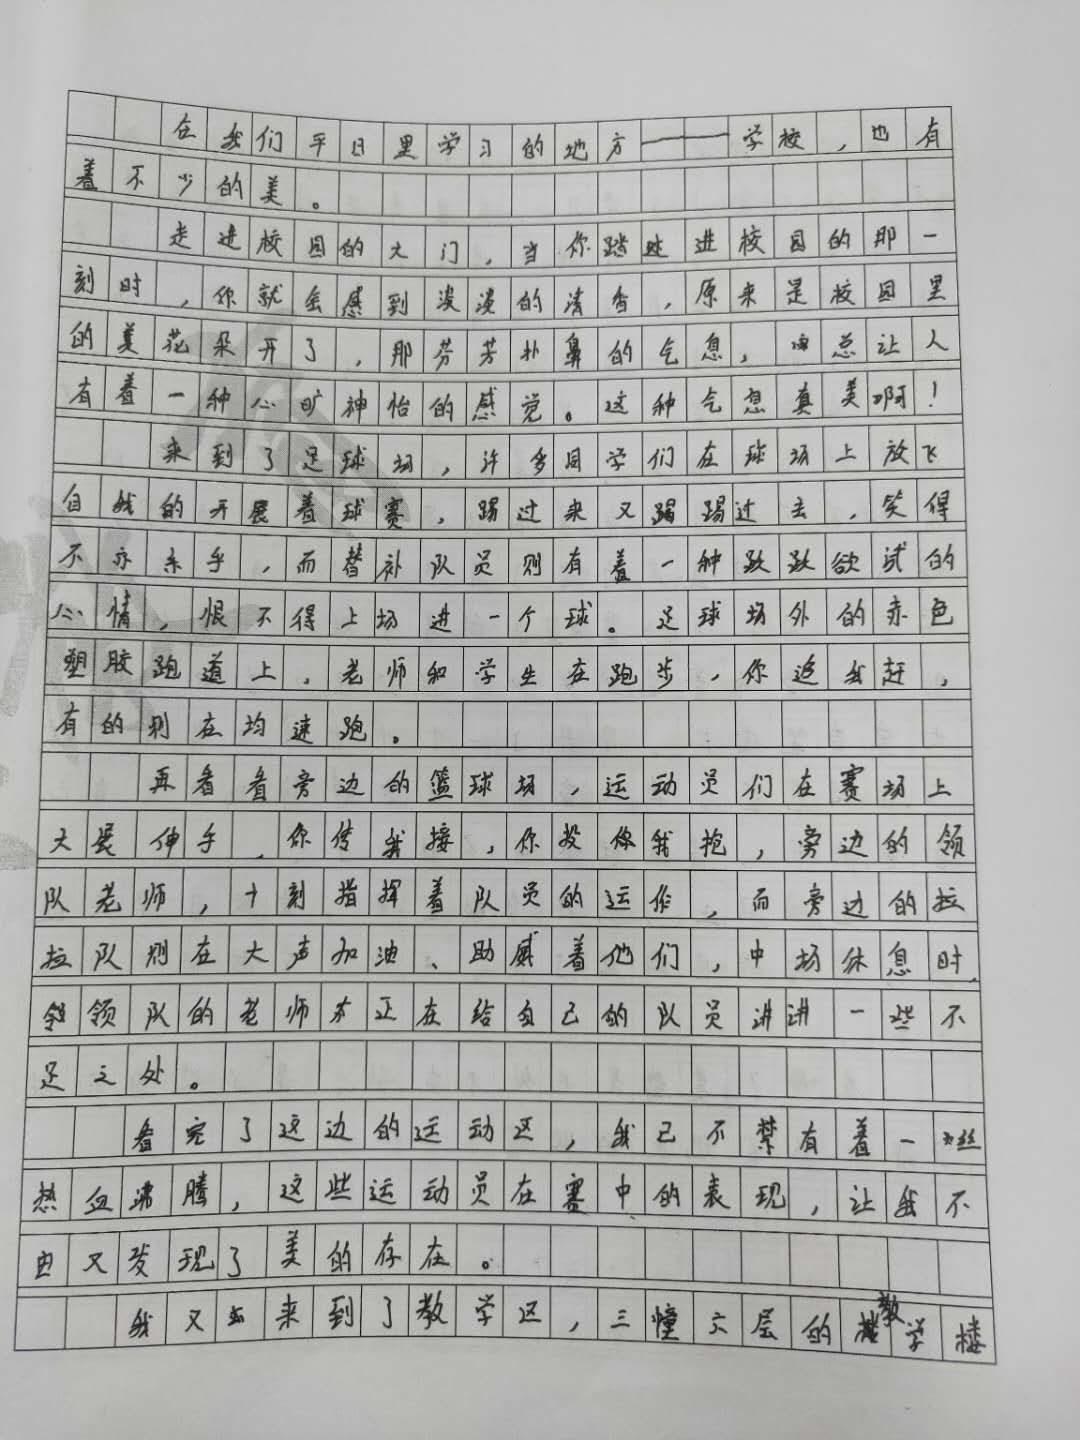 在我们平日里学习的地方——学校，也有
着不少的美。
走进校园的大门，当你踏进校园的那一
刻时，你就会感到淡淡的清香，原来是校园里
的美花朵开了，那芬芳扑鼻的气息，总让人
有着一种心旷神怡的感觉。这种气息真美啊！
来到了足球场，许多同学们在球场上放飞
自我的开展着球赛，踢过来又踢踢过去，笑得
不亦乐乎，而替补队员则有着一种跃跃欲试的
心情，恨不得上场进一个球。足球场外的赤色
塑胶跑道上，老师和学生在跑步，你追我赶，
有的则在均速跑。
再看看旁边的篮球场，运动员们在赛场上
大展伸手，你传我接，你投你我抱，旁边的领
队老师，十刻指挥着队员的运作，而旁边的拉
拉队则在大声加油、助威着他们，中场休息时，
领队的老师亦正在给自己的队员讲讲一些不
足之处。
看完了这边的运动区，我已不禁有着一丝
热血沸腾，这些运动员在赛中的表现，让我不
由又发现了美的存在。
我又来到了教学区，三幢六层的教学楼